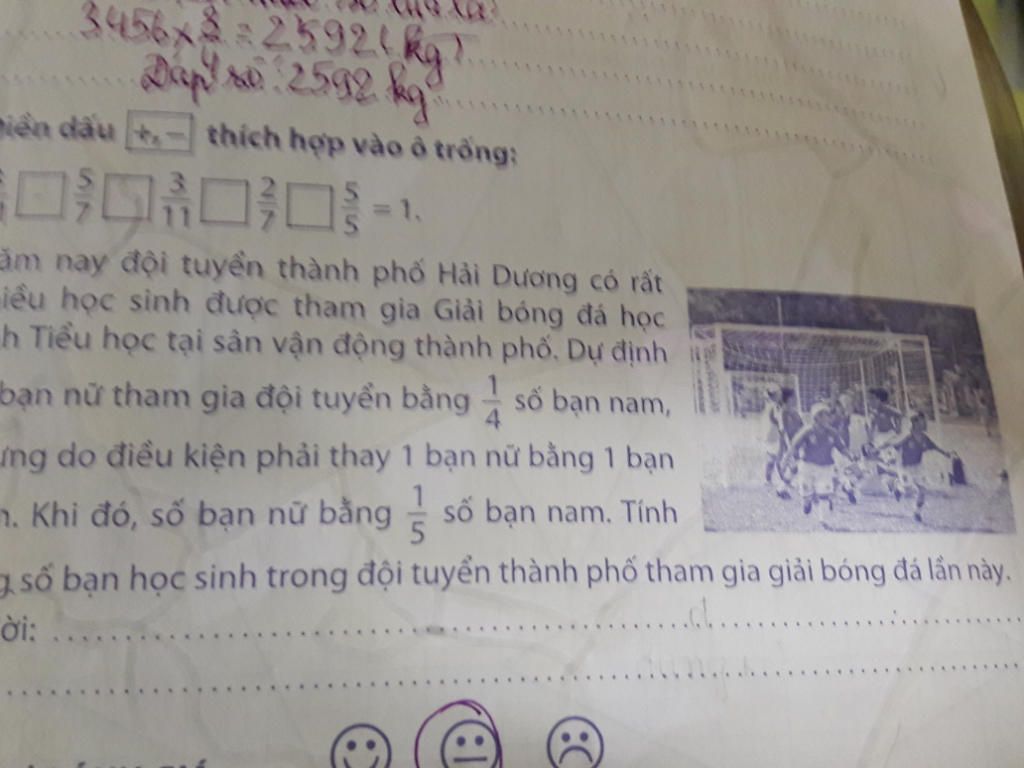 3456 × 3/4 = 2592 (kg)
Đáp số: 2592 kg
điền dấu +, - thích hợp vào ô trống:
□ 5/7 □ 3/11 □ 2/7 □ 5/5 = 1.
năm nay đội tuyển thành phố Hải Dương có rất
nhiều học sinh được tham gia Giải bóng đá học
sinh Tiểu học tại sân vận động thành phố. Dự định
bạn nữ tham gia đội tuyển bằng 1/4 số bạn nam,
nhưng do điều kiện phải thay 1 bạn nữ bằng 1 bạn
Khi đó, số bạn nữ bằng 1/5 số bạn nam. Tính
số bạn học sinh trong đội tuyển thành phố tham gia giải bóng đá lần này.